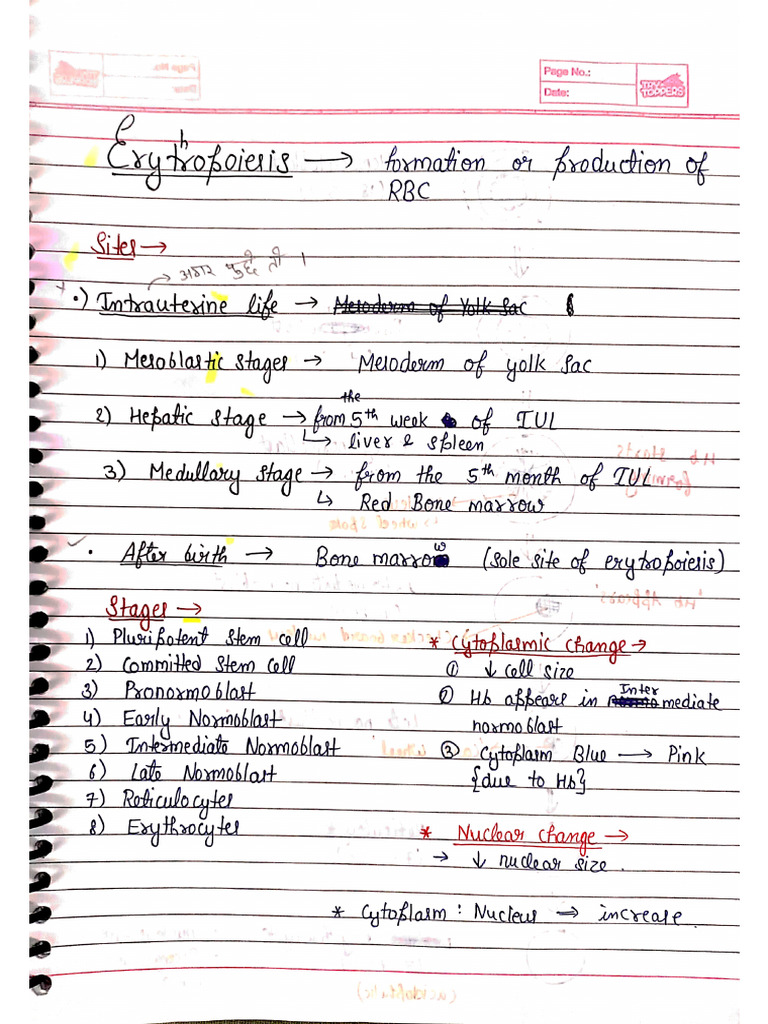 Page No.:
Date:
TOPPERS
Erythropoiesis → formation or production of
RBC
Sites →
→ अगर पूछे तो ।
•) Intrauterine life → Mesoderm of Yolk Sac
1) Mesoblastic stages → Mesoderm of yolk sac
2) Hepatic stage → from the 5th week of IUL
↳ liver & spleen
3) Medullary stage → from the 5th month of IUL
↳ Red Bone marrow
• After birth → Bone marrow (sole site of erytropoiesis)
Stages →
1) Pluripotent stem cell
2) Committed stem cell
3) Pronormoblast
4) Early Normoblast
5) Intermediate Normoblast
6) Late Normoblast
7) Reticulocytes
8) Erythrocytes
* Cytoplasmic change →
① ↓ cell size
② Hb appears in Intermediate
normoblast
③ Cytoplasm Blue → Pink
{due to Hb}
* Nuclear change →
→ ↓ nuclear size.
* Cytoplasm : Nucleus → increase.